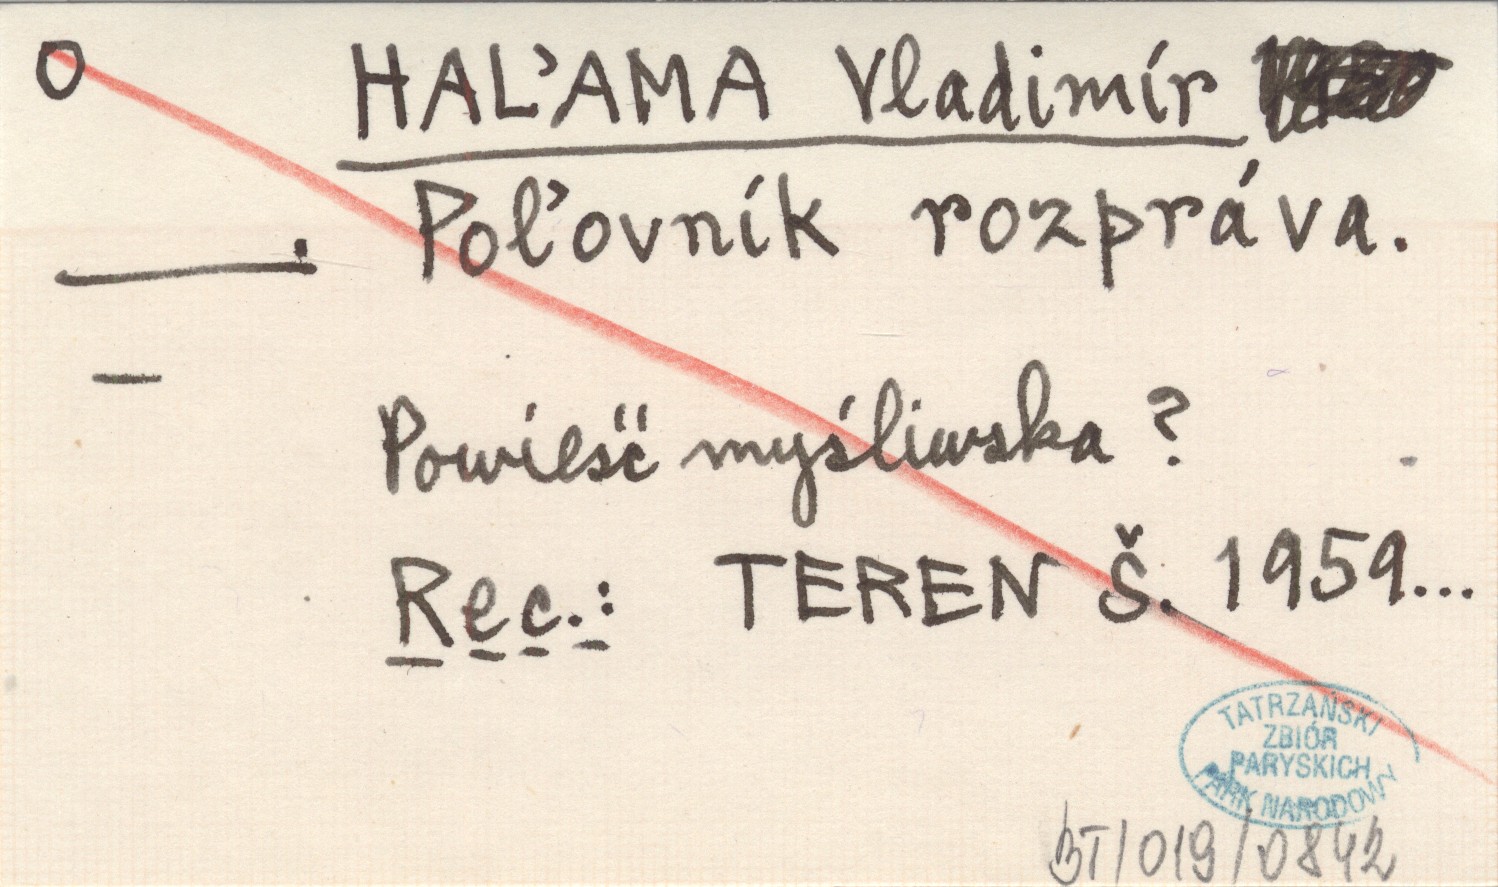 O HAĽAMA Vladimír
Poľovník rozpráva.
Powieść myśliwska ?
Rec.: TEREN Š. 1959...
TATRZAŃSKI
ZBIÓR
PARYSKICH
PARK NARODOWY
BT/019/0842